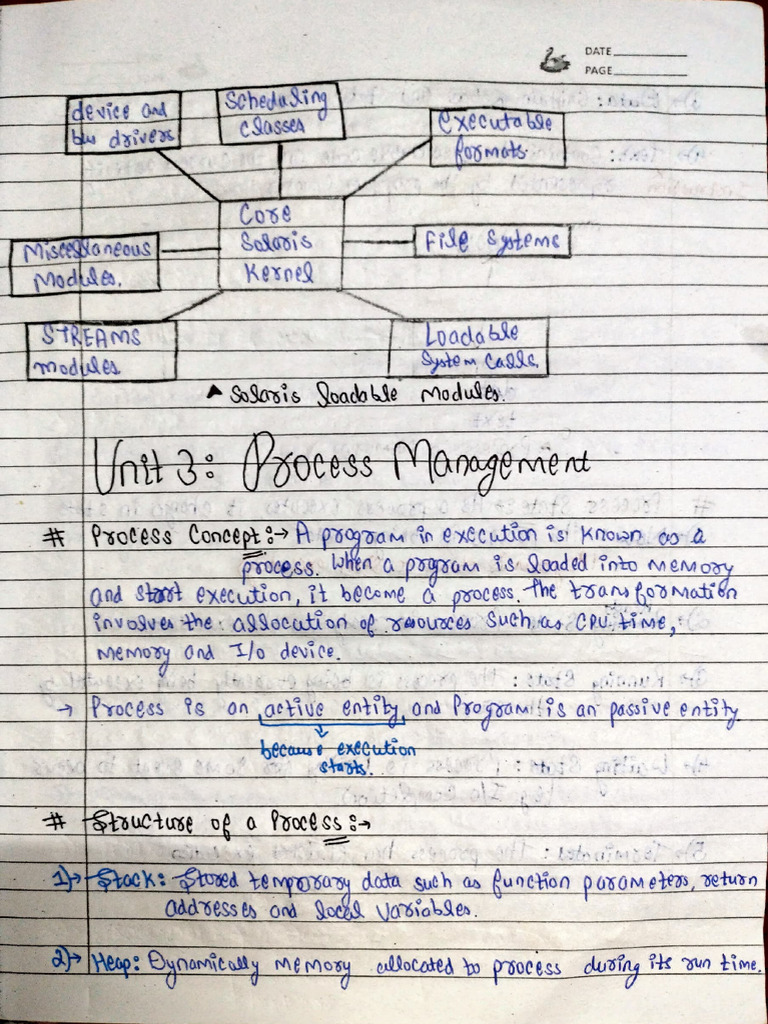 DATE
PAGE
device and
bus drivers
Scheduling
classes
Executable
formats.
Core
Solaris
Kernel
Miscellaneous
Modules.
File Systems
STREAMS
modules
Loadable
System calls.
Solaris loadable modules.
Unit 3: Process Management
# Process Concept:→ A program in execution is known as a
process. When a program is loaded into memory
and start execution, it become a process. The transformation
involves the allocation of resources such as CPU time,
memory and I/o device.
→ Process is an active entity and Program is an passive entity
because execution
starts.
# Structure of a Process:→
1)→ Stack: Stored temporary data such as function parameters, return
addresses and local variables.
2)→ Heap: Dynamically memory allocated to process during its run time.